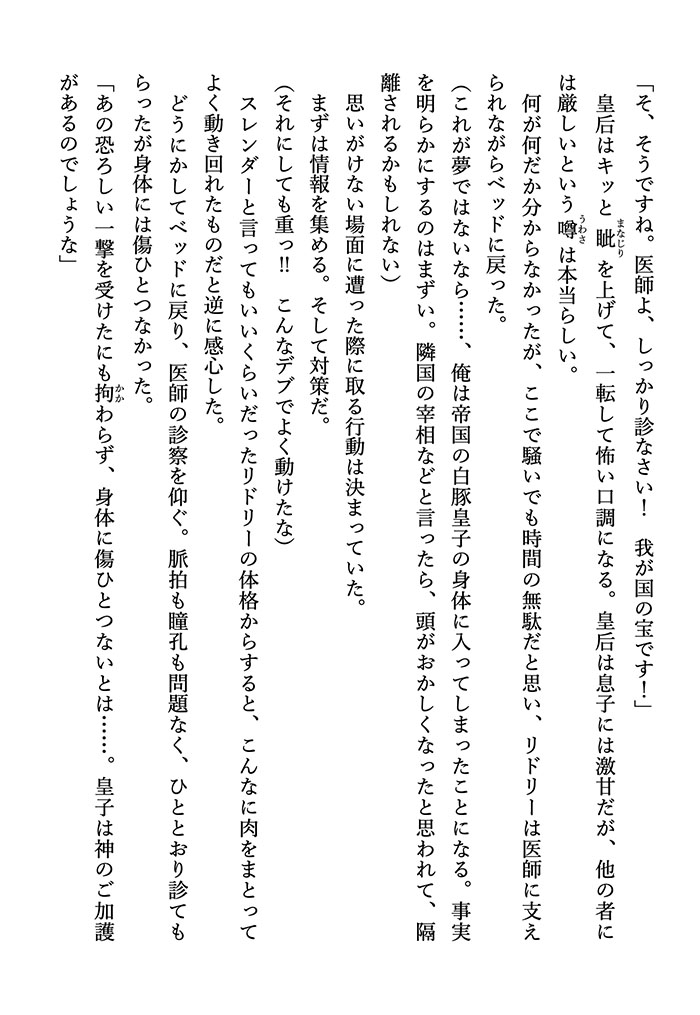 「そ、そうですね。医師よ、しっかり診なさい！　我が国の宝です！」
　皇后はキッと眦を上げて、一転して怖い口調になる。皇后は息子には激甘だが、他の者に
は厳しいという噂は本当らしい。
　何が何だか分からなかったが、ここで騒いでも時間の無駄だと思い、リドリーは医師に支え
られながらベッドに戻った。
（これが夢ではないなら……、俺は帝国の白豚皇子の身体に入ってしまったことになる。事実
を明らかにするのはまずい。隣国の宰相などと言ったら、頭がおかしくなったと思われて、隔
離されるかもしれない）
　思いがけない場面に遭った際に取る行動は決まっていた。
　まずは情報を集める。そして対策だ。
（それにしても重っ!!　こんなデブでよく動けたな）
　スレンダーと言ってもいいくらいだったリドリーの体格からすると、こんなに肉をまとって
よく動き回れたものだと逆に感心した。
　どうにかしてベッドに戻り、医師の診察を仰ぐ。脈拍も瞳孔も問題なく、ひととおり診ても
らったが身体には傷ひとつなかった。
「あの恐ろしい一撃を受けたにも拘わらず、身体に傷ひとつないとは……。皇子は神のご加護
があるのでしょうな」
まなじり
うわさ
かか